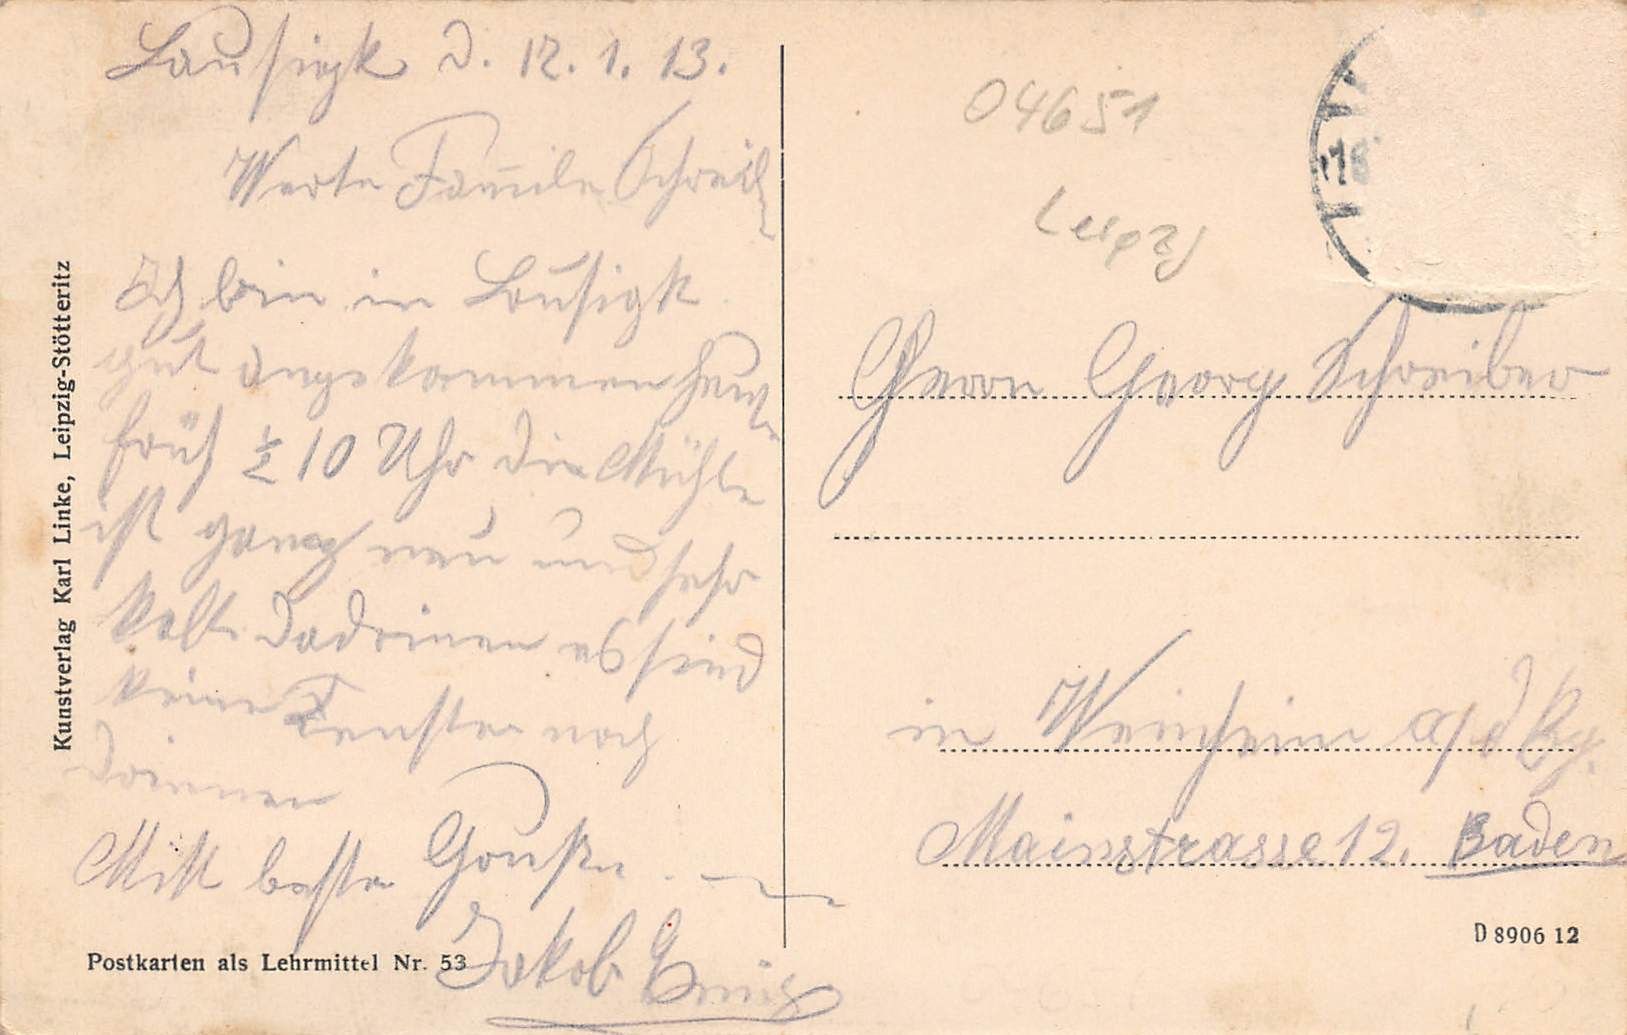 Lausigk d. 12. 1. 13.
Werte Familie Schreib
Ich bin in Lausigk
gut angekommen heut
früh ½ 10 Uhr die Mühle
ist ganz neu und sehr
kalt dadrinen es sind
keine Fenster noch
drinnen
Mitt beste Grüße
Jakob
Kunstverlag Karl Linke, Leipzig-Stötteritz
Postkarten als Lehrmittel Nr. 53
04651
Leipzg
18
Herrn Georg Schreiber
in Weinheim a/d Bg.
Mainstrasse 12. Baden
D 8906 12